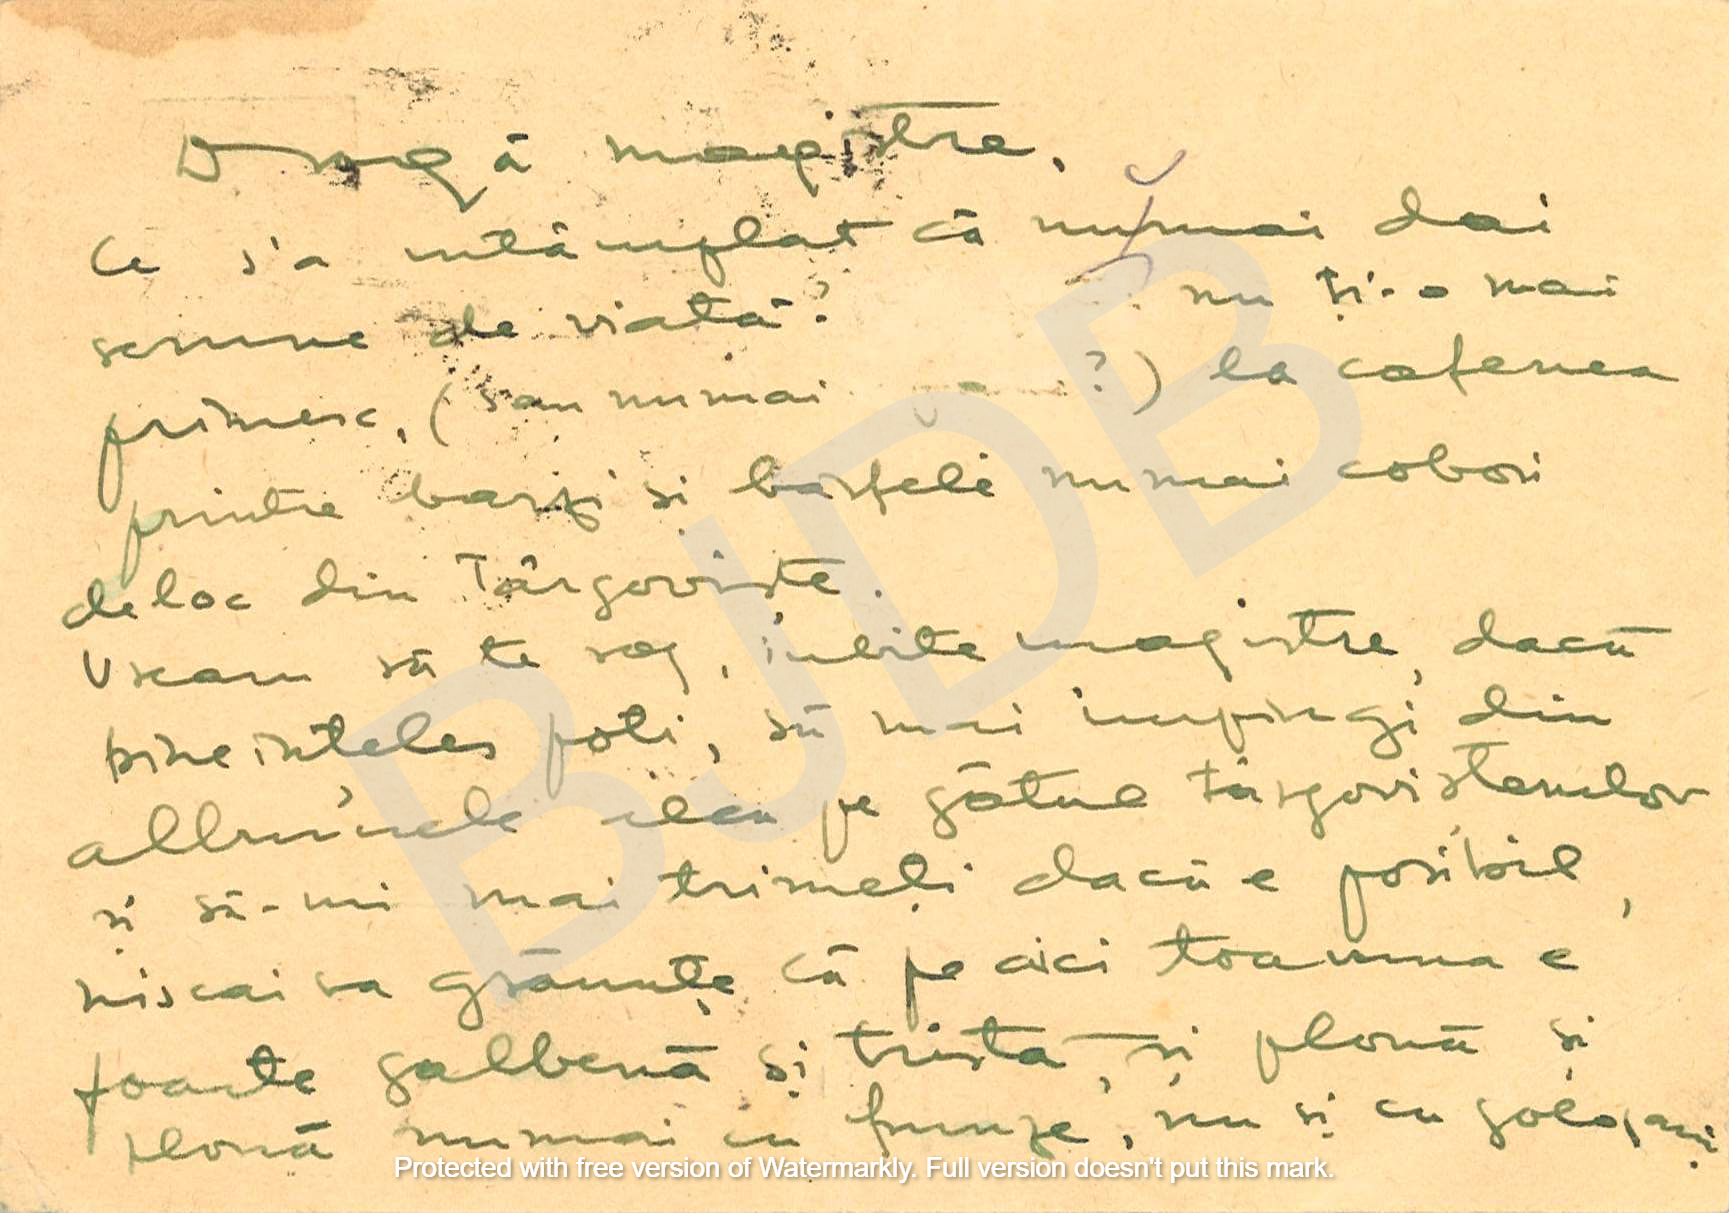 Dragă magistre,
Ce s'a întâmplat că numai dai
semne de viață? nu ți-o mai
primesc, (sau numai ?) la cafenea
printre barzi și bârfeli numai cobori
deloc din Târgoviște.
Vream să te rog, iubite magistre, dacă
bineînțeles poti, să mai împingi din
albinele pe gâtul târgoviștenilor
și să-mi mai trimeți dacă e posibil,
niscaiva grăunțe că pe aici toamna e
foarte galbenă și tristă, și plouă și
plouă numai cu frunze, nu și cu gologani
BJDB
Protected with free version of Watermarkly. Full version doesn't put this mark.